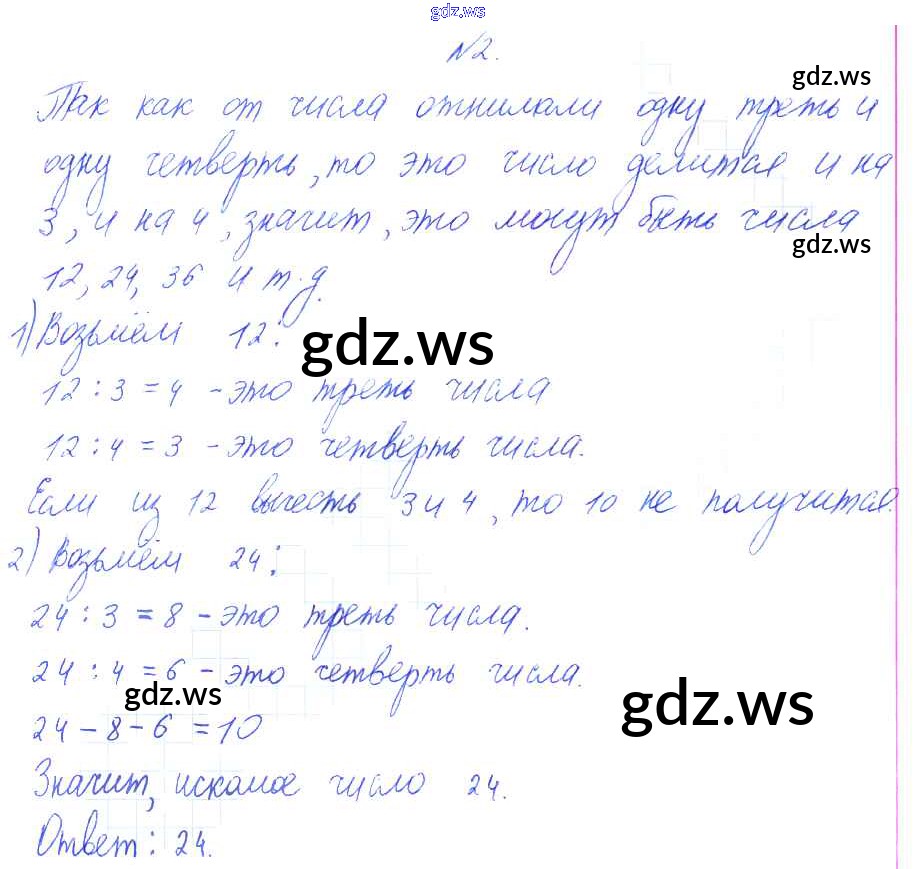 gdz.ws
№2.
gdz.ws
Так как от числа отнимали одну треть и
одну четверть, то это число делится и на
3, и на 4, значит, это могут быть числа
gdz.ws
12, 24, 36 и т.д.
1) Возьмём 12:
gdz.ws
12 : 3 = 4 - это треть числа
12 : 4 = 3 - это четверть числа.
Если из 12 вычесть 3 и 4, то 10 не получится.
2) Возьмём 24:
24 : 3 = 8 - это треть числа.
24 : 4 = 6 - это четверть числа.
gdz.ws
gdz.ws
24 - 8 - 6 = 10
Значит, искомое число 24.
Ответ: 24.